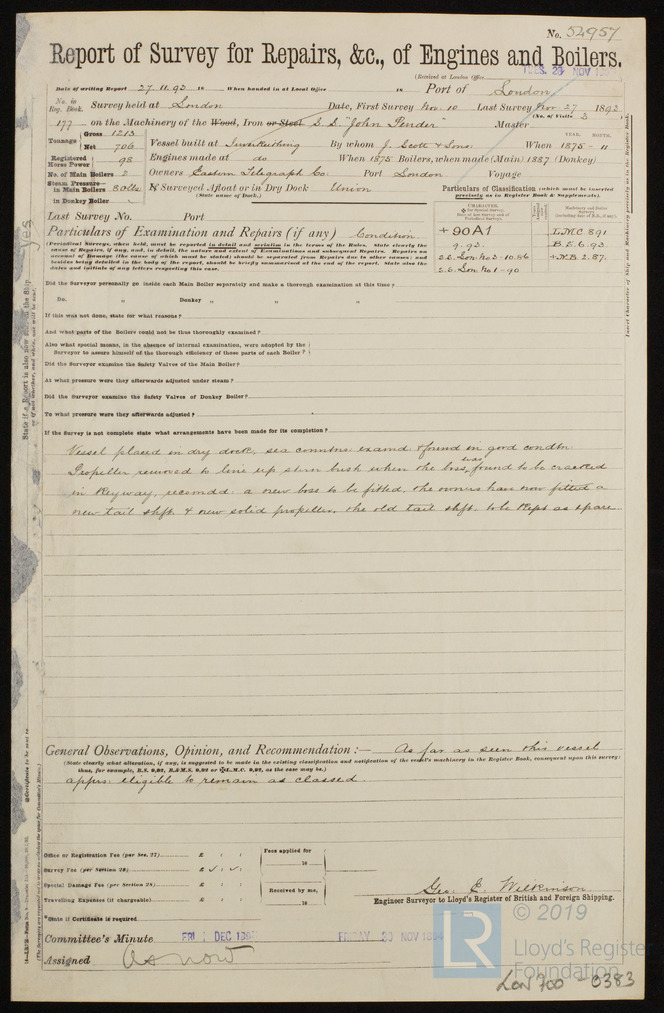 No. 52957
Report of Survey for Repairs, &c., of Engines and Boilers.
(Received at London Office TUES. 29 NOV 189
Date of writing Report 27.11.92 18 When handed in at Local Office 18 Port of London
No. in Reg. Book. Survey held at London Date, First Survey Nov 10 Last Survey Nov 27 1892
(No. of Visits 3
177 on the Machinery of the Wood, Iron or Steel S.S. "John Pender" Master
Tonnage Gross 1213 Net 706
YEAR. MONTH.
Vessel built at By whom J. Scott & Sons When 1875 - 11
Registered Horse Power 98
Engines made at do When 1875 Boilers, when made (Main) 1887 (Donkey)
No. of Main Boilers 2
Owners Eastern Telegraph Co. Port London Voyage
Steam Pressure in Main Boilers 80lbs
in Donkey Boiler
If Surveyed Afloat or in Dry Dock Union
(State name of Dock.)
Particulars of Classification (which must be inserted precisely as in Register Book & Supplements).
Last Survey No. Port
Particulars of Examination and Repairs (if any) Condition
(Periodical Surveys, when held, must be reported in detail and seriatim in the terms of the Rules. State clearly the cause of Repairs, if any, and, in detail, the nature and extent of Examinations and subsequent Repairs. Repairs on account of Damage (the cause of which must be stated) should be separated from Repairs due to other causes; and besides being detailed in the body of the report, should be briefly summarised at the end of the report. State also the dates and initials of any letters respecting this case.
+90A1 L.M.C. 8.91
9.92. B.E. 6.92
S.S. Lon No 2-10.86 +N.B. 2.87.
S.S. Lon No 1-90
Did the Surveyor personally go inside each Main Boiler separately and make a thorough examination at this time?
Do. " Donkey " " "
If this was not done, state for what reasons?
And what parts of the Boilers could not be thus thoroughly examined?
Also what special means, in the absence of internal examination, were adopted by the Surveyor to assure himself of the thorough efficiency of those parts of each Boiler?
Did the Surveyor examine the Safety Valves of the Main Boiler?
At what pressure were they afterwards adjusted under steam?
Did the Surveyor examine the Safety Valves of Donkey Boiler?
To what pressure were they afterwards adjusted?
If the Survey is not complete state what arrangements have been made for its completion?
Vessel placed in dry dock, sea conntns examd & found in good condtn.
Propeller removed to line up stern bush when the boss was found to be cracked
in Keyway, recomdd: a new boss to be fitted, the owners have now fitted a
new tail shft. & new solid propeller, the old tail shft. to be kept as spare.
General Observations, Opinion, and Recommendation :— As far as seen this vessel
(State clearly what alteration, if any, is suggested to be made in the existing classification and notification of the vessel's machinery in the Register Book, consequent upon this survey: thus, for example, B.S. 9,92, B.&M.S. 9,92 or L.M.C. 9,92, as the case may be.)
apprs: eligible to remain as classed.
Office or Registration Fee (per Sec. 27) £ : :
Fees applied for
18
Survey Fee (per Section 28) £
Special Damage Fee (per Section 28) £ : :
Received by me,
18
Travelling Expenses (if chargeable) £ : :
Geo. E. Wilkinson.
Engineer Surveyor to Lloyd's Register of British and Foreign Shipping.
*State if Certificate is required
Committee's Minute FRI 2 DEC 189 FRIDAY 30 NOV 1894
Assigned As now
© 2019
LR
Lloyd's Register
Foundation
LON 700 - 0383